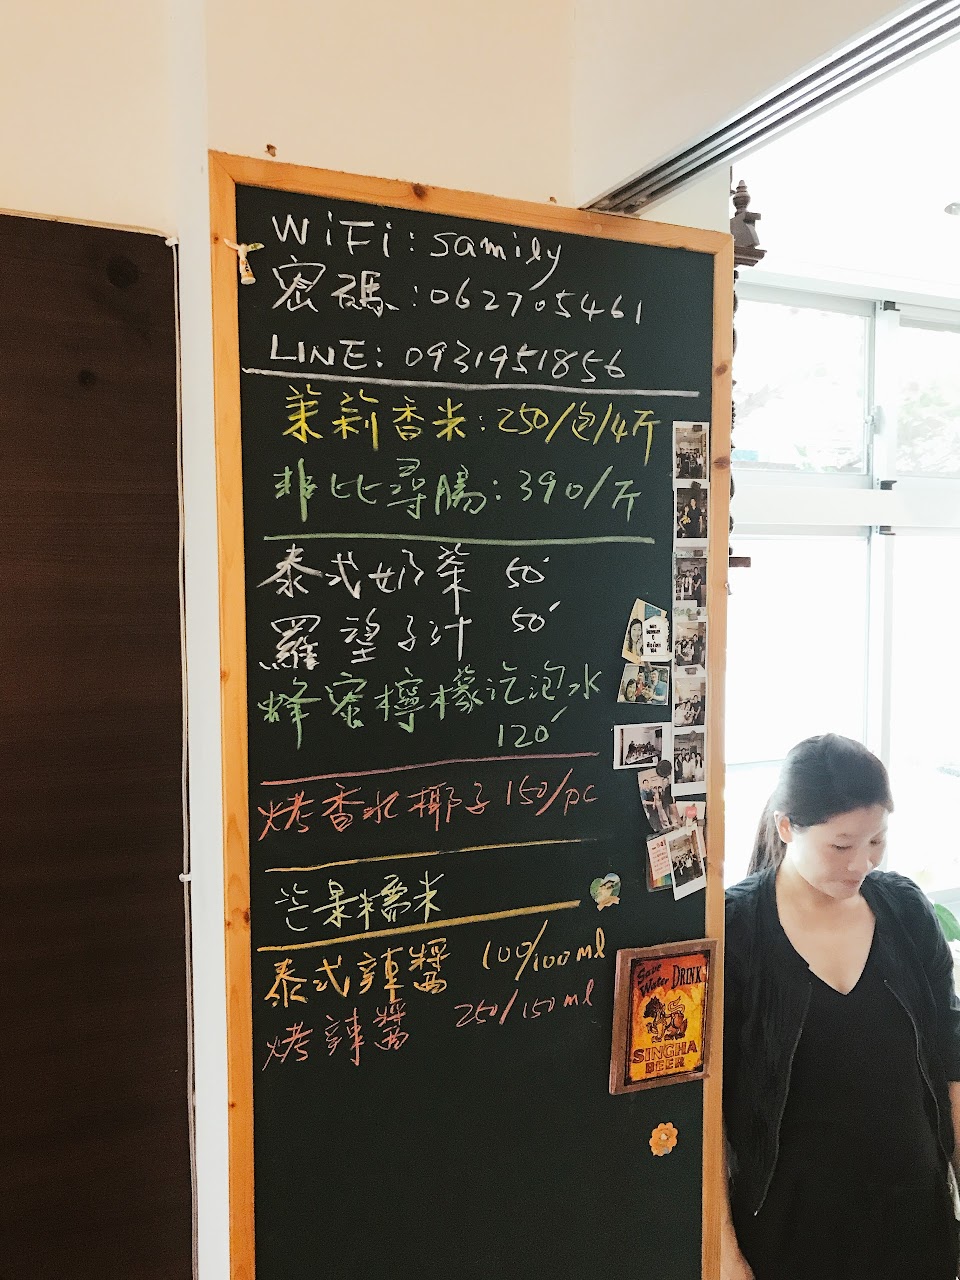 WiFi: samily
密碼:062705461
LINE: 0931951856
茉莉香米:250/包/4斤
非比尋腸:390/斤
泰式奶茶 50
羅望子汁 50
蜂蜜檸檬汽泡水
120
烤香水椰子 150/pc
芒果糯米
泰式辣醬 100/100ml
烤辣醬 250/150ml
Save Water DRINK
SINGHA
BEER